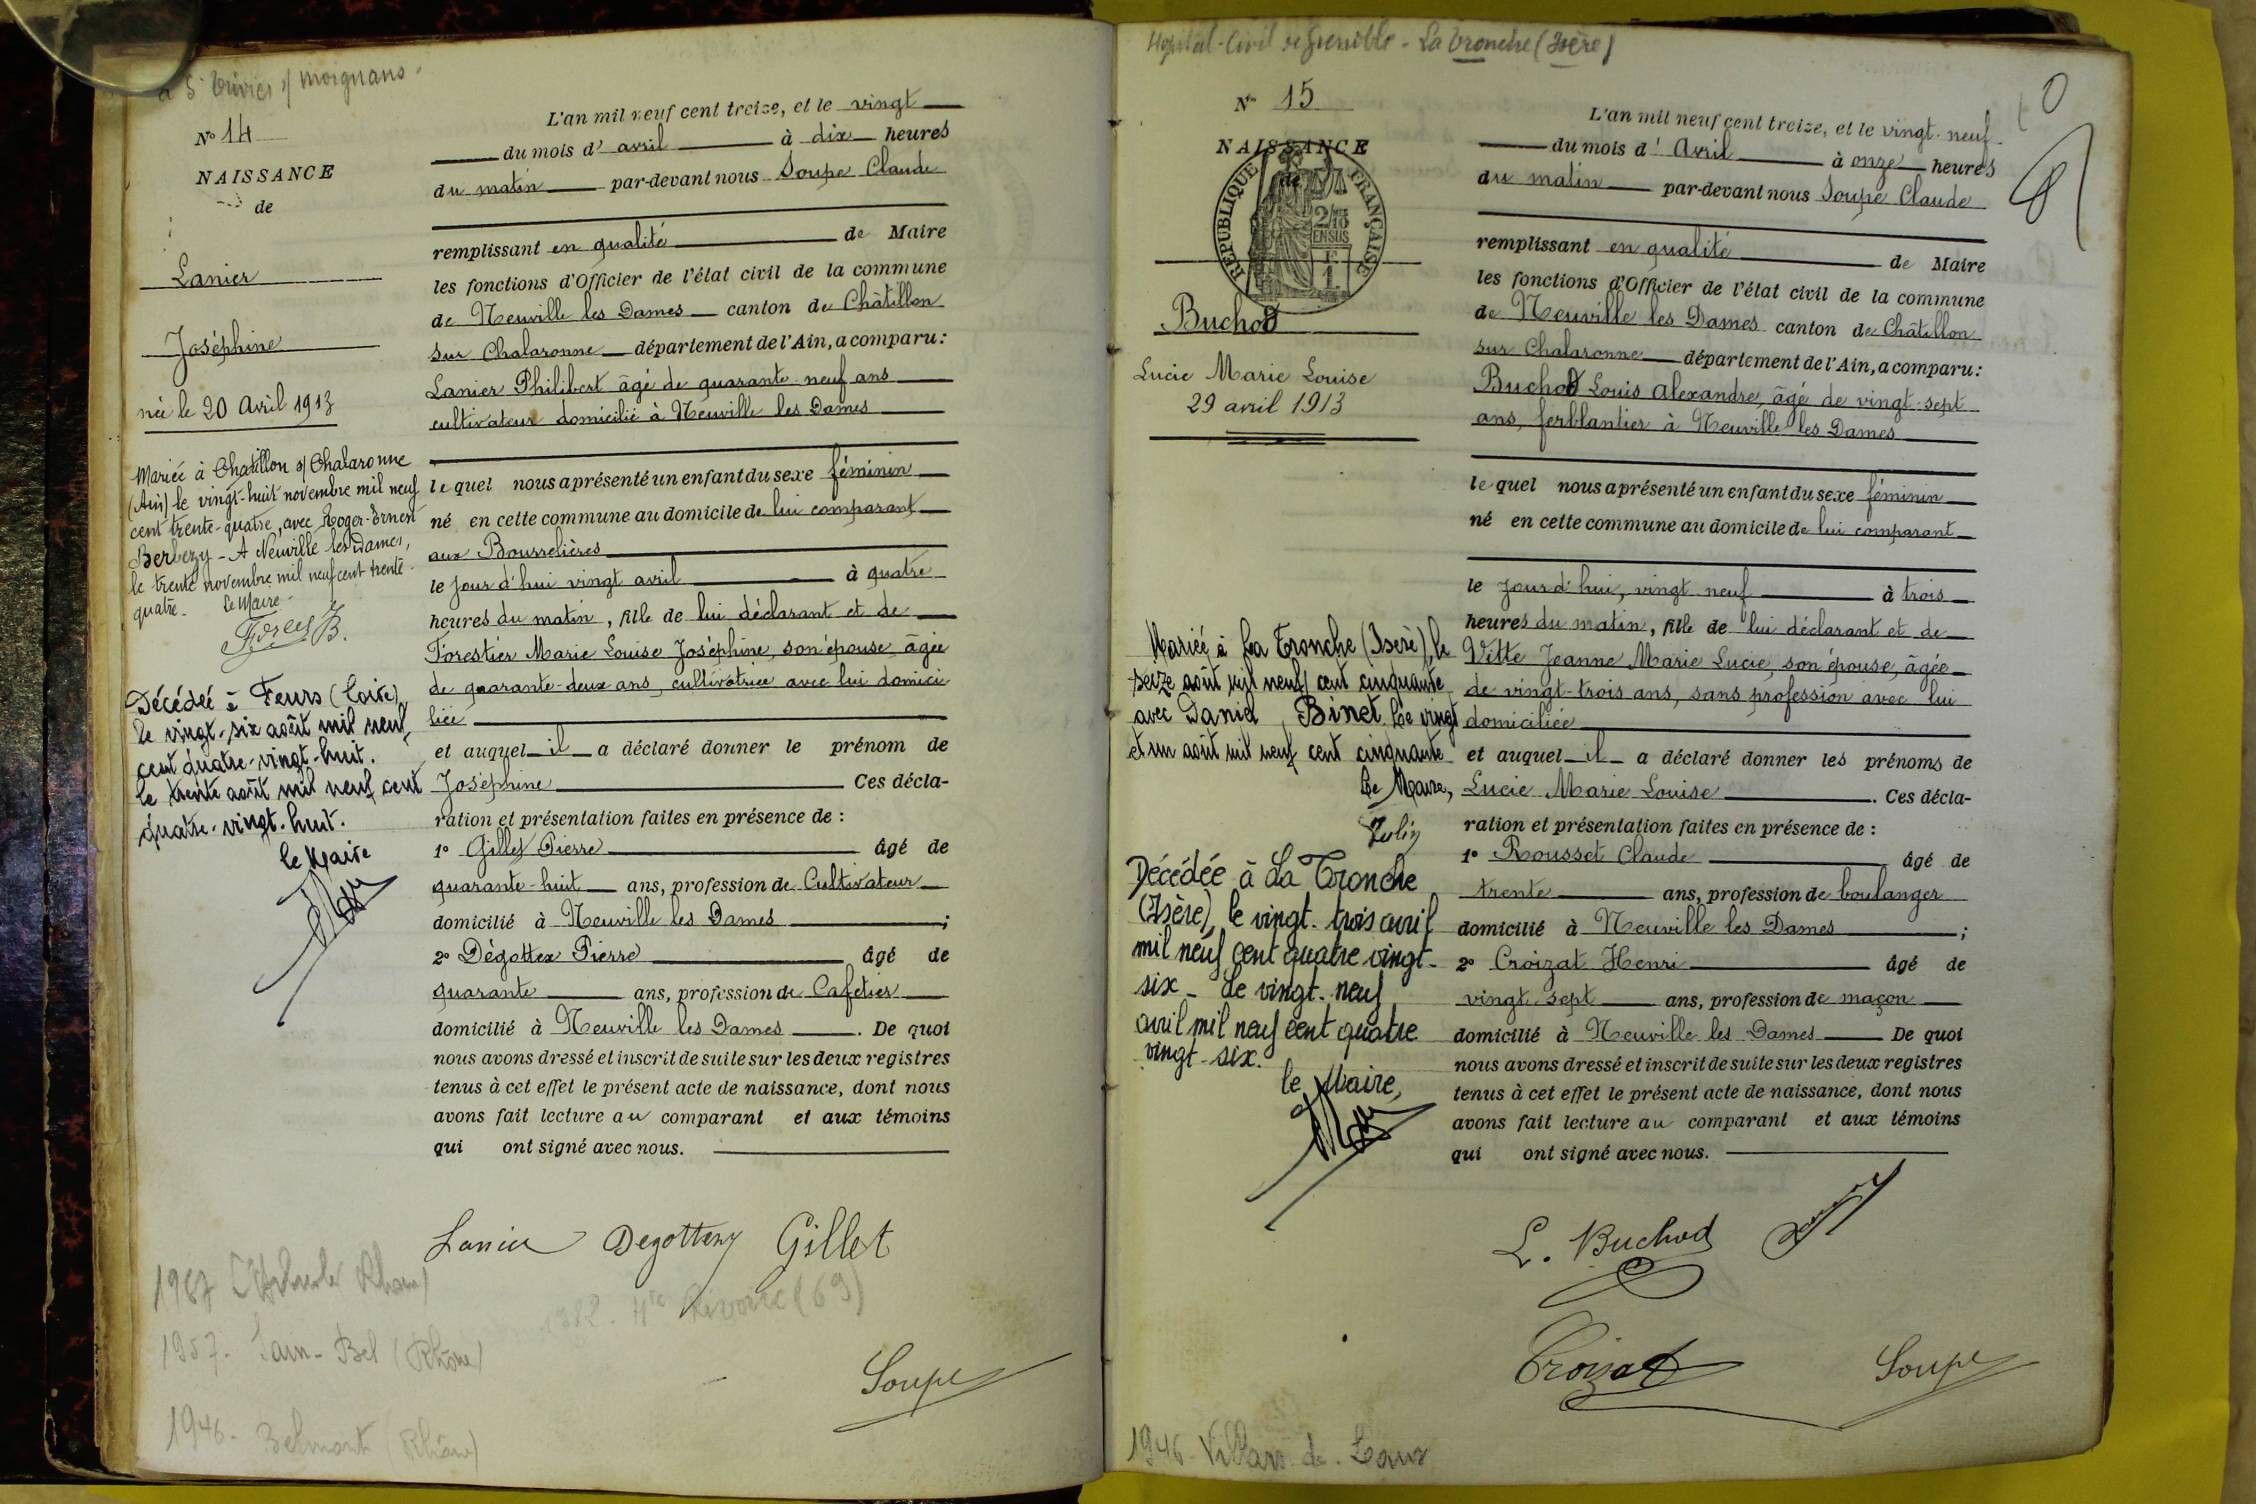 à St Trivier s/ Moignans.
No 14
NAISSANCE
de
Lanier
Joséphine
née le 20 Avril 1913
Mariée à Chatillon s/ Chalaronne
(Ain), le vingt-huit novembre mil neuf
cent trente-quatre, avec Roger-Ernest
Berbezy - A Neuville les Dames,
le trente novembre mil neuf cent trente-
quatre. Le Maire.
Décédée à Feurs (Loire)
le vingt-six août mil neuf
cent quatre-vingt-huit.
le trente août mil neuf cent
quatre-vingt-huit.
le Maire
L'an mil neuf cent treize, et le vingt
du mois d'avril à dix heures
du matin par-devant nous Soupe Claude
remplissant en qualité de Maire
les fonctions d'Officier de l'état civil de la commune
de Neuville les Dames canton de Châtillon
sur Chalaronne département de l'Ain, a comparu:
Lanier Philibert âgé de quarante-neuf ans
cultivateur domicilié à Neuville les Dames
lequel nous a présenté un enfant du sexe féminin
né en cette commune au domicile de lui comparant
aux Bousselières
le jour d'hui vingt avril à quatre
heures du matin, fille de lui déclarant et de
Forestier Marie Louise Joséphine, son épouse, âgée
de quarante-deux ans, cultivatrice avec lui domici
liée
et auquel il a déclaré donner le prénom de
Joséphine Ces décla-
ration et présentation faites en présence de :
1o Gillet Pierre âgé de
quarante-huit ans, profession de Cultivateur
domicilié à Neuville les Dames ;
2o Dégottex Pierre âgé de
quarante ans, profession de Cafetier
domicilié à Neuville les Dames . De quoi
nous avons dressé et inscrit de suite sur les deux registres
tenus à cet effet le présent acte de naissance, dont nous
avons fait lecture au comparant et aux témoins
qui ont signé avec nous.
Lanier Degottex Gillet
Soupe
1967 (Rhône)
1982. (69)
1957. Sain-Bel (Rhône)
1946. Belmont (Rhône)
Hopital-Civil de Grenoble - La Tronche (Isère)
No 15
NAISSANCE
de
RÉPUBLIQUE FRANÇAISE
2/10
EN SUS
Buchod
Lucie Marie Louise
29 avril 1913
Mariée à La Tronche (Isère), le
seize août mil neuf cent cinquante
avec Daniel Binet. Le vingt
et un août mil neuf cent cinquante
Le Maire,
Décédée à La Tronche
(Isère), le vingt-trois avril
mil neuf cent quatre vingt-
six - Le vingt-neuf
avril mil neuf cent quatre
vingt-six.
le Maire,
L'an mil neuf cent treize, et le vingt-neuf
du mois d'Avril à onze heures
du matin par-devant nous Soupe Claude
remplissant en qualité de Maire
les fonctions d'Officier de l'état civil de la commune
de Neuville les Dames canton de Châtillon
sur Chalaronne département de l'Ain, a comparu:
Buchod Louis Alexandre, âgé de vingt-sept
ans, ferblantier à Neuville les Dames
lequel nous a présenté un enfant du sexe féminin
né en cette commune au domicile de lui comparant
le jour d'hui, vingt neuf à trois
heures du matin, fille de lui déclarant et de
Vitte Jeanne Marie Lucie, son épouse, âgée
de vingt-trois ans, sans profession avec lui
domiciliée
et auquel il a déclaré donner les prénoms de
Lucie Marie Louise . Ces décla-
ration et présentation faites en présence de :
1o Rousset Claude âgé de
trente ans, profession de boulanger
domicilié à Neuville les Dames ;
2o Croizat Henri âgé de
vingt sept ans, profession de maçon
domicilié à Neuville les Dames De quoi
nous avons dressé et inscrit de suite sur les deux registres
tenus à cet effet le présent acte de naissance, dont nous
avons fait lecture au comparant et aux témoins
qui ont signé avec nous.
L. Buchod
Croizat Soupe
1946. Villars-de-Lans